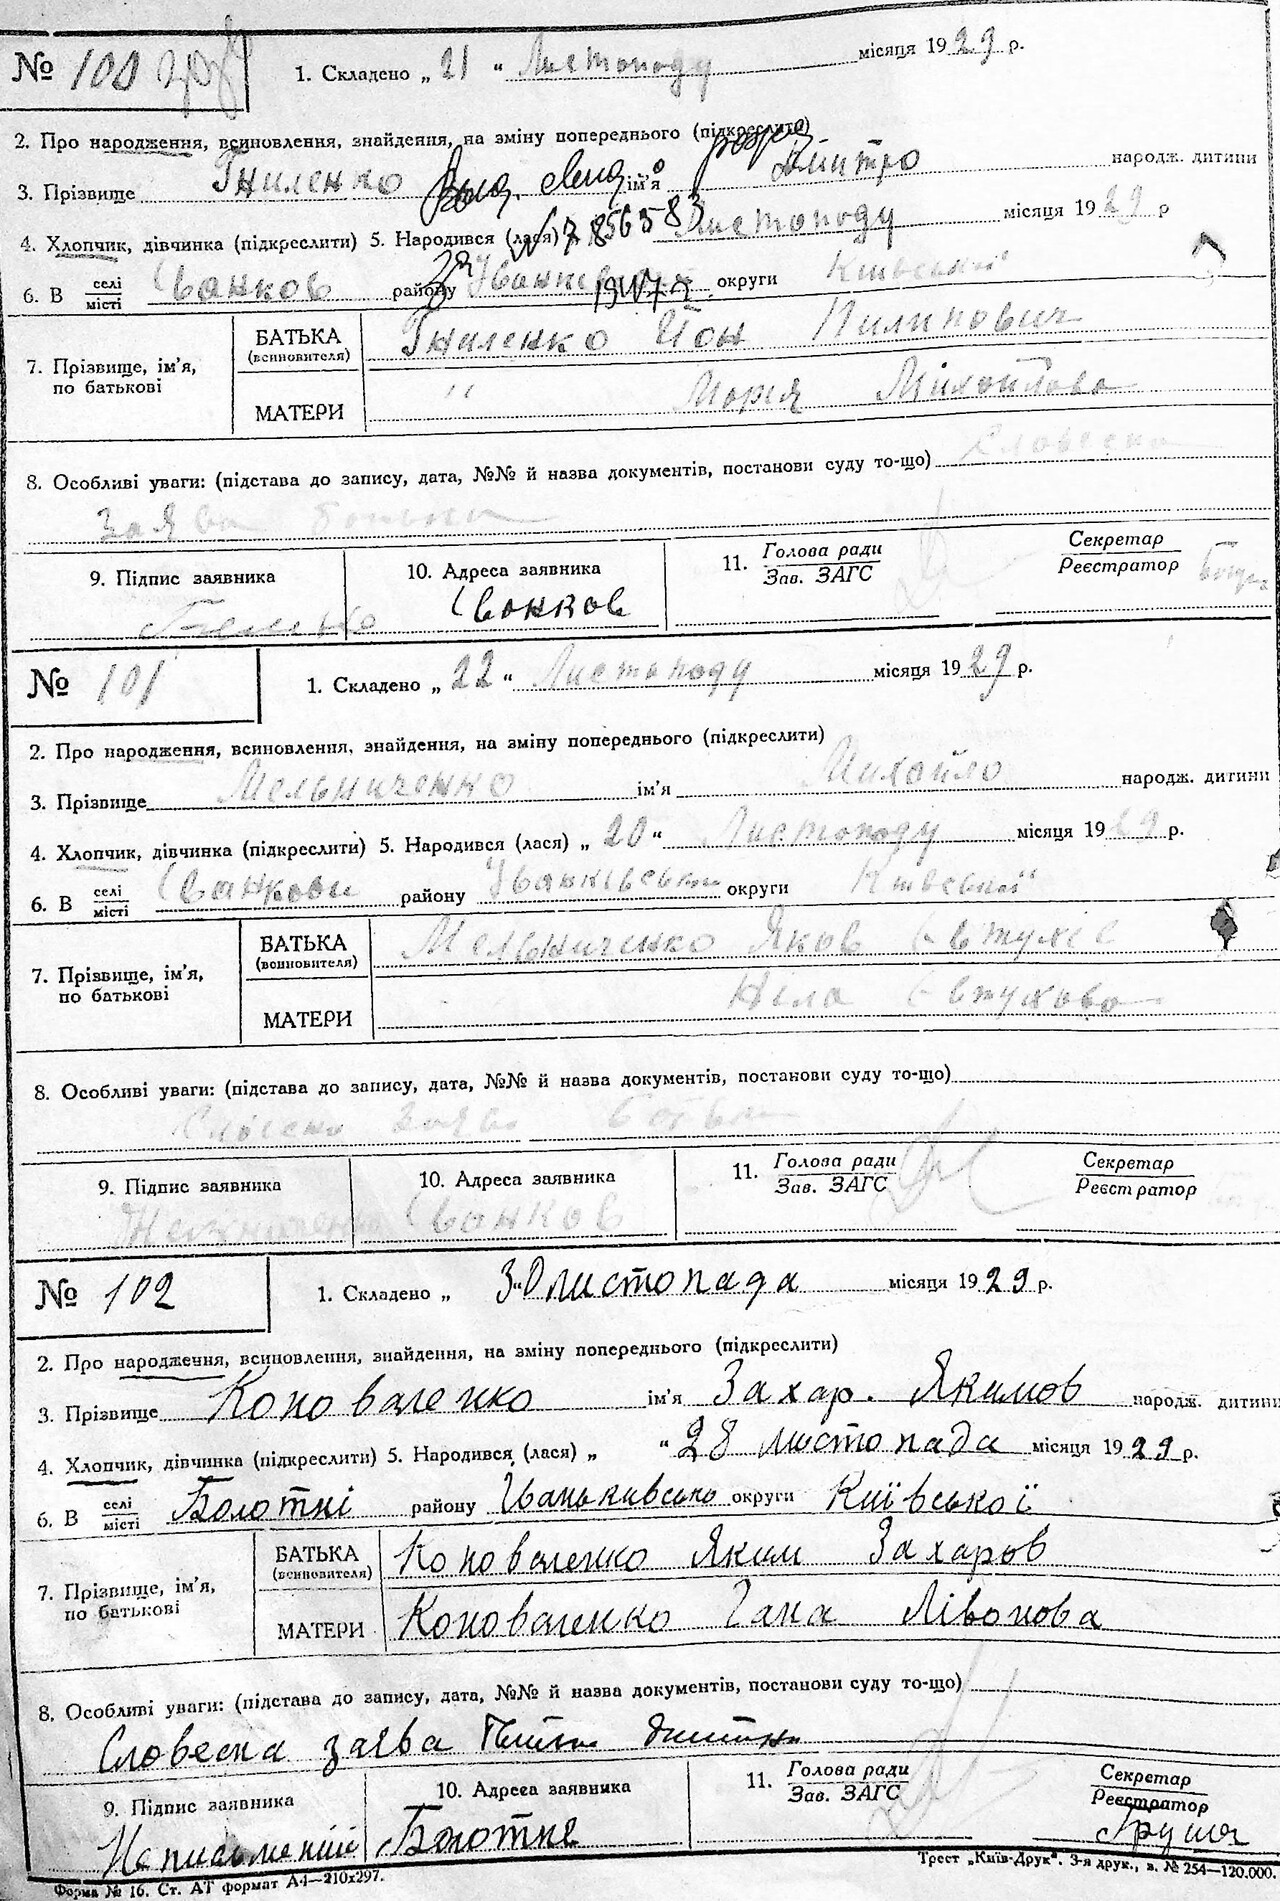 № 100
1. Складено „ 21 “ Листопаду місяця 1929 р.
2. Про народження, всиновлення, знайдення, на зміну попереднього (підкреслити)
3. Прізвище Гниленко ім'я Дмитро народж. дитини
4. Хлопчик, дівчинка (підкреслити) 5. Народився (лася) Листопаду місяця 1929 р
6. В селі/місті Іванков району округи Київської
7. Прізвище, ім'я, по батькові
БАТЬКА (всиновителя) Гниленко Йон Пилипович
МАТЕРИ " Мория Михайлова
8. Особливі уваги: (підстава до запису, дата, №№ й назва документів, постанови суду то-що) Словесна
Заява батька
9. Підпис заявника
10. Адреса заявника Іванков
11. Голова ради/Зав. ЗАГС
Секретар/Реєстратор
№ 101
1. Складено „ 22 “ Листопаду місяця 1929 р.
2. Про народження, всиновлення, знайдення, на зміну попереднього (підкреслити)
3. Прізвище Мельниченко ім'я Михайло народж. дитини
4. Хлопчик, дівчинка (підкреслити) 5. Народився (лася) „ 20 “ Листопаду місяця 1929 р.
6. В селі/місті Іванкови району Іванківськи округи Київської
7. Прізвище, ім'я, по батькові
БАТЬКА (всиновителя) Мельниченко Яков Євтухів
МАТЕРИ Євтухова
8. Особливі уваги: (підстава до запису, дата, №№ й назва документів, постанови суду то-що)
Заява
9. Підпис заявника
10. Адреса заявника Іванков
11. Голова ради/Зав. ЗАГС
Секретар/Реєстратор
№ 102
1. Складено „ 30 листопада місяця 1929 р.
2. Про народження, всиновлення, знайдення, на зміну попереднього (підкреслити)
3. Прізвище Коноваленко ім'я Захар. Якимов народж. дитини
4. Хлопчик, дівчинка (підкреслити) 5. Народився (лася) „ “ 28 листопада місяця 1929 р.
6. В селі/місті Болотні району Іванькивсько округи Київської
7. Прізвище, ім'я, по батькові
БАТЬКА (всиновителя) Коноваленко Яким Захаров
МАТЕРИ Коноваленко Гана Лівонова
8. Особливі уваги: (підстава до запису, дата, №№ й назва документів, постанови суду то-що)
Словесна заява
9. Підпис заявника Неписьменний
10. Адреса заявника Болотня
11. Голова ради/Зав. ЗАГС
Секретар/Реєстратор
Форма № 16. Ст. АТ формат А4—210х297.
Трест „Київ-Друк“. 3-я друк., з. № 254—120.000.